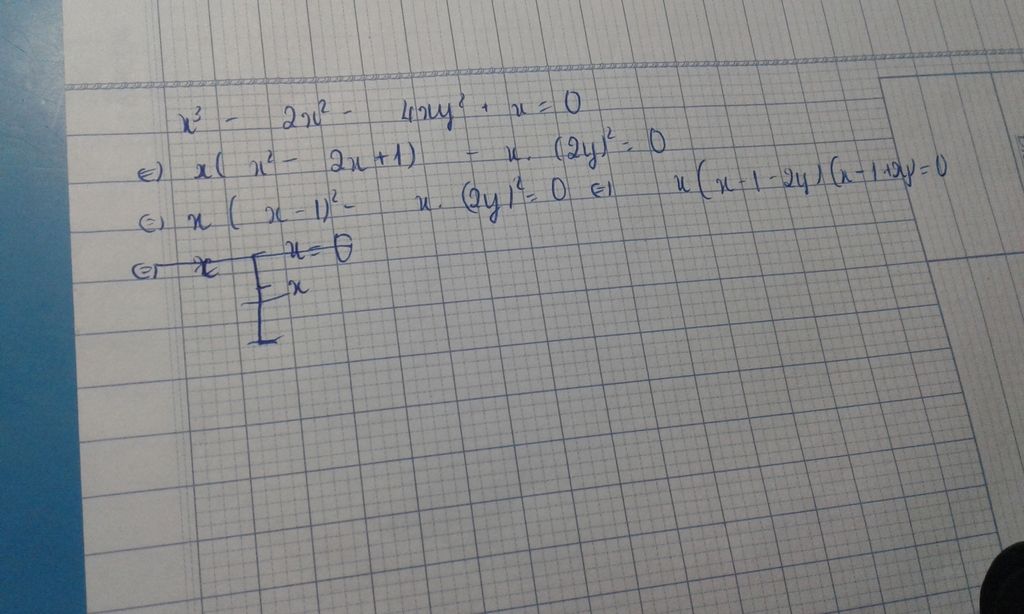 x³ - 2x² - 4xy² + x = 0
⇔ x( x² - 2x + 1) - x. (2y)² = 0
⇔ x ( x - 1)² - x. (2y)² = 0 ⇔ x ( x - 1 - 2y) (x - 1 + 2y) = 0
⇔ x [ x = 0
x